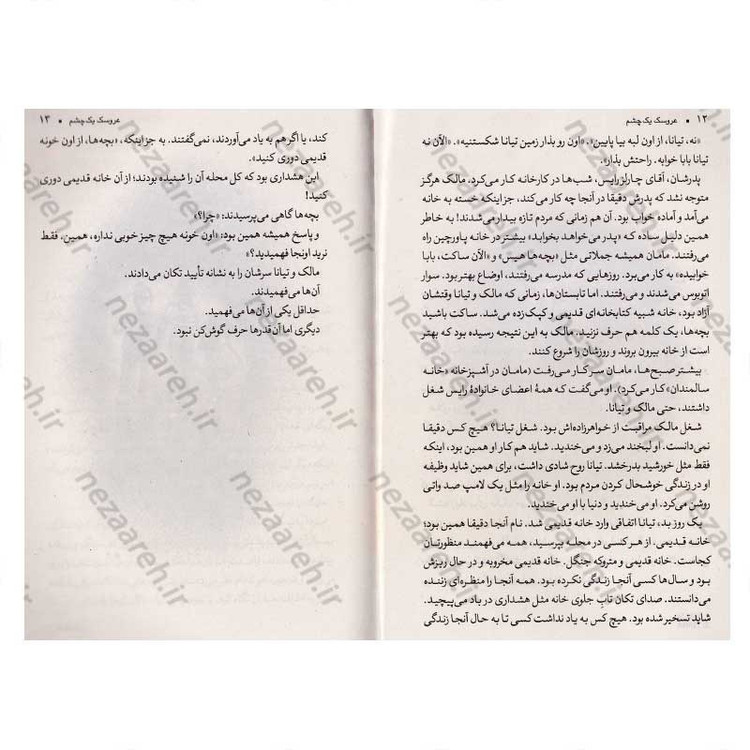 ۱۲ • عروسک یک چشم
«نه، تیانا، از اون لبه بیا پایین». «اون رو بذار زمین تیانا شکستنیه». «الآن نه
تیانا بابا خوابه. راحتش بذار».
پدرشان، آقای چارلز رایس، شب‌ها در کارخانه کار می‌کرد. مالک هرگز
متوجه نشد که پدرش دقیقا در آنجا چه کار می‌کند، جزاینکه خسته به خانه
می‌آمد و آماده خواب بود. آن هم زمانی که مردم تازه بیدار می‌شدند! به خاطر
همین دلیل ساده که «پدر می‌خواهد بخوابد» بیشتر در خانه پاورچین راه
می‌رفتند. مامان همیشه جملاتی مثل «بچه‌ها هیس» و «الآن ساکت، بابا
خوابیده» به کار می‌برد. روزهایی که مدرسه می‌رفتند، اوضاع بهتر بود. سوار
اتوبوس می‌شدند و می‌رفتند. اما تابستان‌ها، زمانی که مالک و تیانا وقتشان
آزاد بود، خانه شبیه کتابخانه‌ای قدیمی و کپک زده می‌شد. ساکت باشید
بچه‌ها، یک کلمه هم حرف نزنید. مالک به این نتیجه رسیده بود که بهتر
است از خانه بیرون بروند و روزشان را شروع کنند.
بیشتر صبح‌ها، مامان سر کار می‌رفت (مامان در آشپزخانه «خانه
سالمندان» کار می‌کرد). او می‌گفت که همۀ اعضای خانوادۀ رایس شغل
داشتند، حتی مالک و تیانا.
شغل مالک مراقبت از خواهرزاده‌اش بود. شغل تیانا؟ هیچ کس دقیقا
نمی‌دانست. او لبخند می‌زد و می‌خندید. شاید هم کار او همین بود، اینکه
فقط مثل خورشید بدرخشد. تیانا روح شادی داشت، برای همین شاید وظیفه
او در زندگی خوشحال کردن مردم بود. او خانه را مثل یک لامپ صد واتی
روشن می‌کرد. او می‌خندید و دنیا با او می‌خندید.
یک روز بد، تیانا اتفاقی وارد خانه قدیمی شد. نام آنجا دقیقا همین بود؛
خانه قدیمی. از هر کسی در محله بپرسید، همه می‌فهمند منظورتان
کجاست. خانه قدیمی و متروکه جنگل. خانه قدیمی مخروبه و در حال ریزش
بود و سال‌ها کسی آنجا زندگی نکرده بود. همه آنجا را منظره‌ای زننده
می‌دانستند. صدای تکان تاب جلوی خانه مثل هشداری در باد می‌پیچید.
شاید تسخیر شده بود. هیچ کس به یاد نداشت کسی تا به حال آنجا زندگی
عروسک یک چشم • ۱۳
کند، یا اگر هم به یاد می‌آوردند، نمی‌گفتند. به جز اینکه، «بچه‌ها، از اون خونه
قدیمی دوری کنید».
این هشداری بود که کل محله آن را شنیده بودند؛ از آن خانه قدیمی دوری
کنید!
بچه‌ها گاهی می‌پرسیدند: «چرا؟»
و پاسخ همیشه همین بود: «اون خونه هیچ چیز خوبی نداره، همین. فقط
نرید اونجا فهمیدید؟»
مالک و تیانا سرشان را به نشانه تأیید تکان می‌دادند.
آن‌ها می‌فهمیدند.
حداقل یکی از آن‌ها می‌فهمید.
دیگری اما آن‌قدرها حرف گوش‌کن نبود.
nezaareh.ir
nezaareh.ir
nezaareh.ir
nezaareh.ir
nezaareh.ir
nezaareh.ir